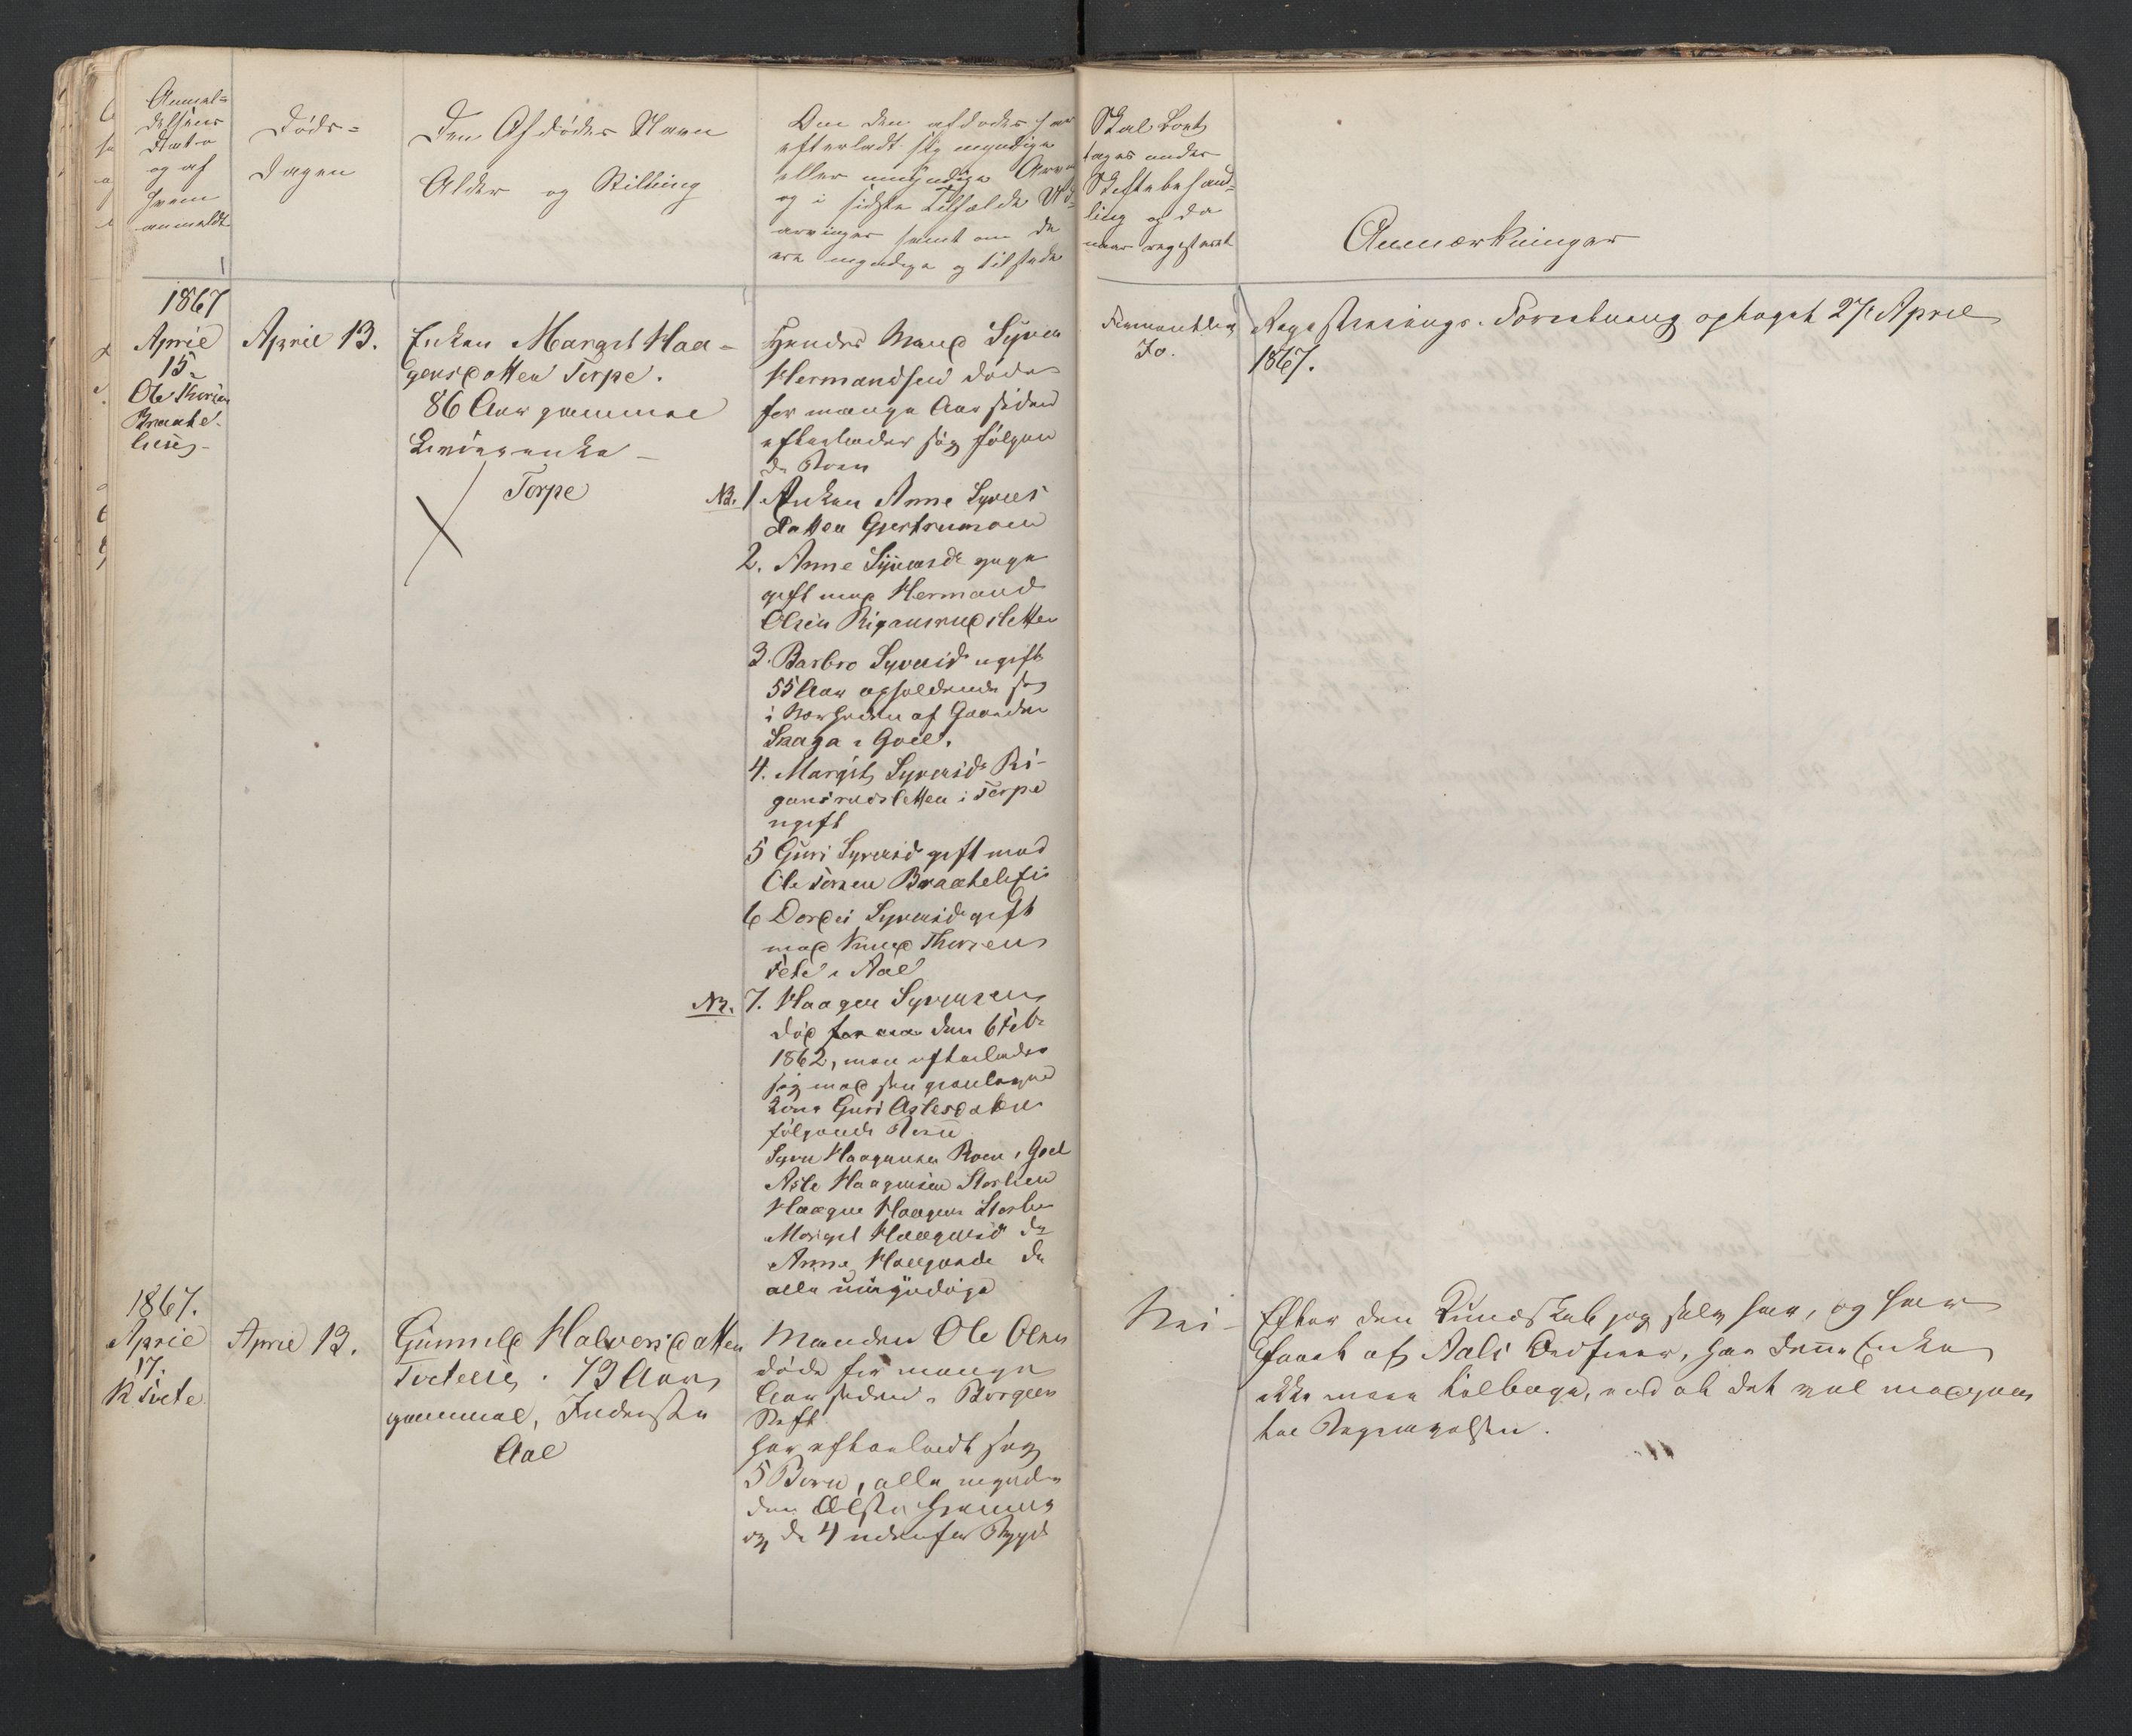 Anmel=
delsens
Dato
og af
hvem
anmeldt
Døds=
dagen
Den Afdødes Navn
Alder og Stilling
Om den afdøde har
efterladt sig myndige
eller umyndige Arv
og i sidste Tilfælde Ud=
arvinger samt om de
ere myndige og tilstede
Skal Boet
tages under
Skiftebehand=
ling og da
naar registreret
Anmærkninger
1867
April
15
Ole Thorsen
Braate
lien
April 13.
Enken Margit Haa=
gensdatter Torpe.
86 Aar gammel
enke
Torpe
Hendes Mand Syver
Hermandsen døde
for mange Aar siden
efterlader sig følgen
de Børn
NB. 1 Enken Anne Syvers
datter
2. Anne Syversdr
gift med Hermand
Olsen Rigansrudsletten
3. Barbro Syversdr ugift
55 Aar opholdende sig
i Nærheden af Gaarden
i Goel.
4. Margit Syversdr Ri=
gansrudsletten i Torpe
ugift
5 Guri Syversd gift med
Ole Torsen Braatelien
6 Dordei Syversdr gift
med Knud Thorsen
i Aal
NB. 7. Haagen Syversen
død for den 6 Feb
1862, men efterlader
sig med sin
Kone Guri Aslesdatter
følgende Børn
Syver Haagensen Roen i Goel
Asle Haagensen Storlien
Haagen Haagens Storlien
Margit Haagensd do
Anne Haagensd do
alle umyndige
Formentlig
Jo.
Registrerings Forretning optaget 27 April
1867.
1867.
April
17.
K Tvete
April 13.
Gunnild Halvorsdatter
Tvetelien. 73 Aar
gammel, Inderste
Aal
Manden Ole Olsen
døde for mange
Aar siden i Bergens
Stift
har efterladt sig
5 Børn, alle myndige
den Ældste hjemme
og de 4 udenfor Bygd
Nei
Efter den Kundskab jeg selv har, og har
faaet af Aals Ordfører, har denne Enke
ikke mere tilbage, end at det vel medgaar
til Begravelsen.